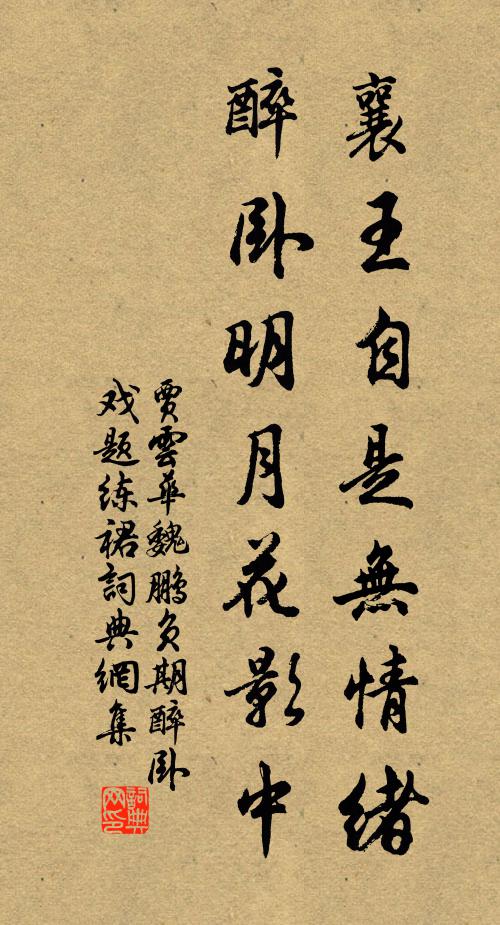 襄王自是無情緒
醉卧明月花影中
賈雲華魏鵬負期醉卧
戏题练裙詞典網集
詞典网印